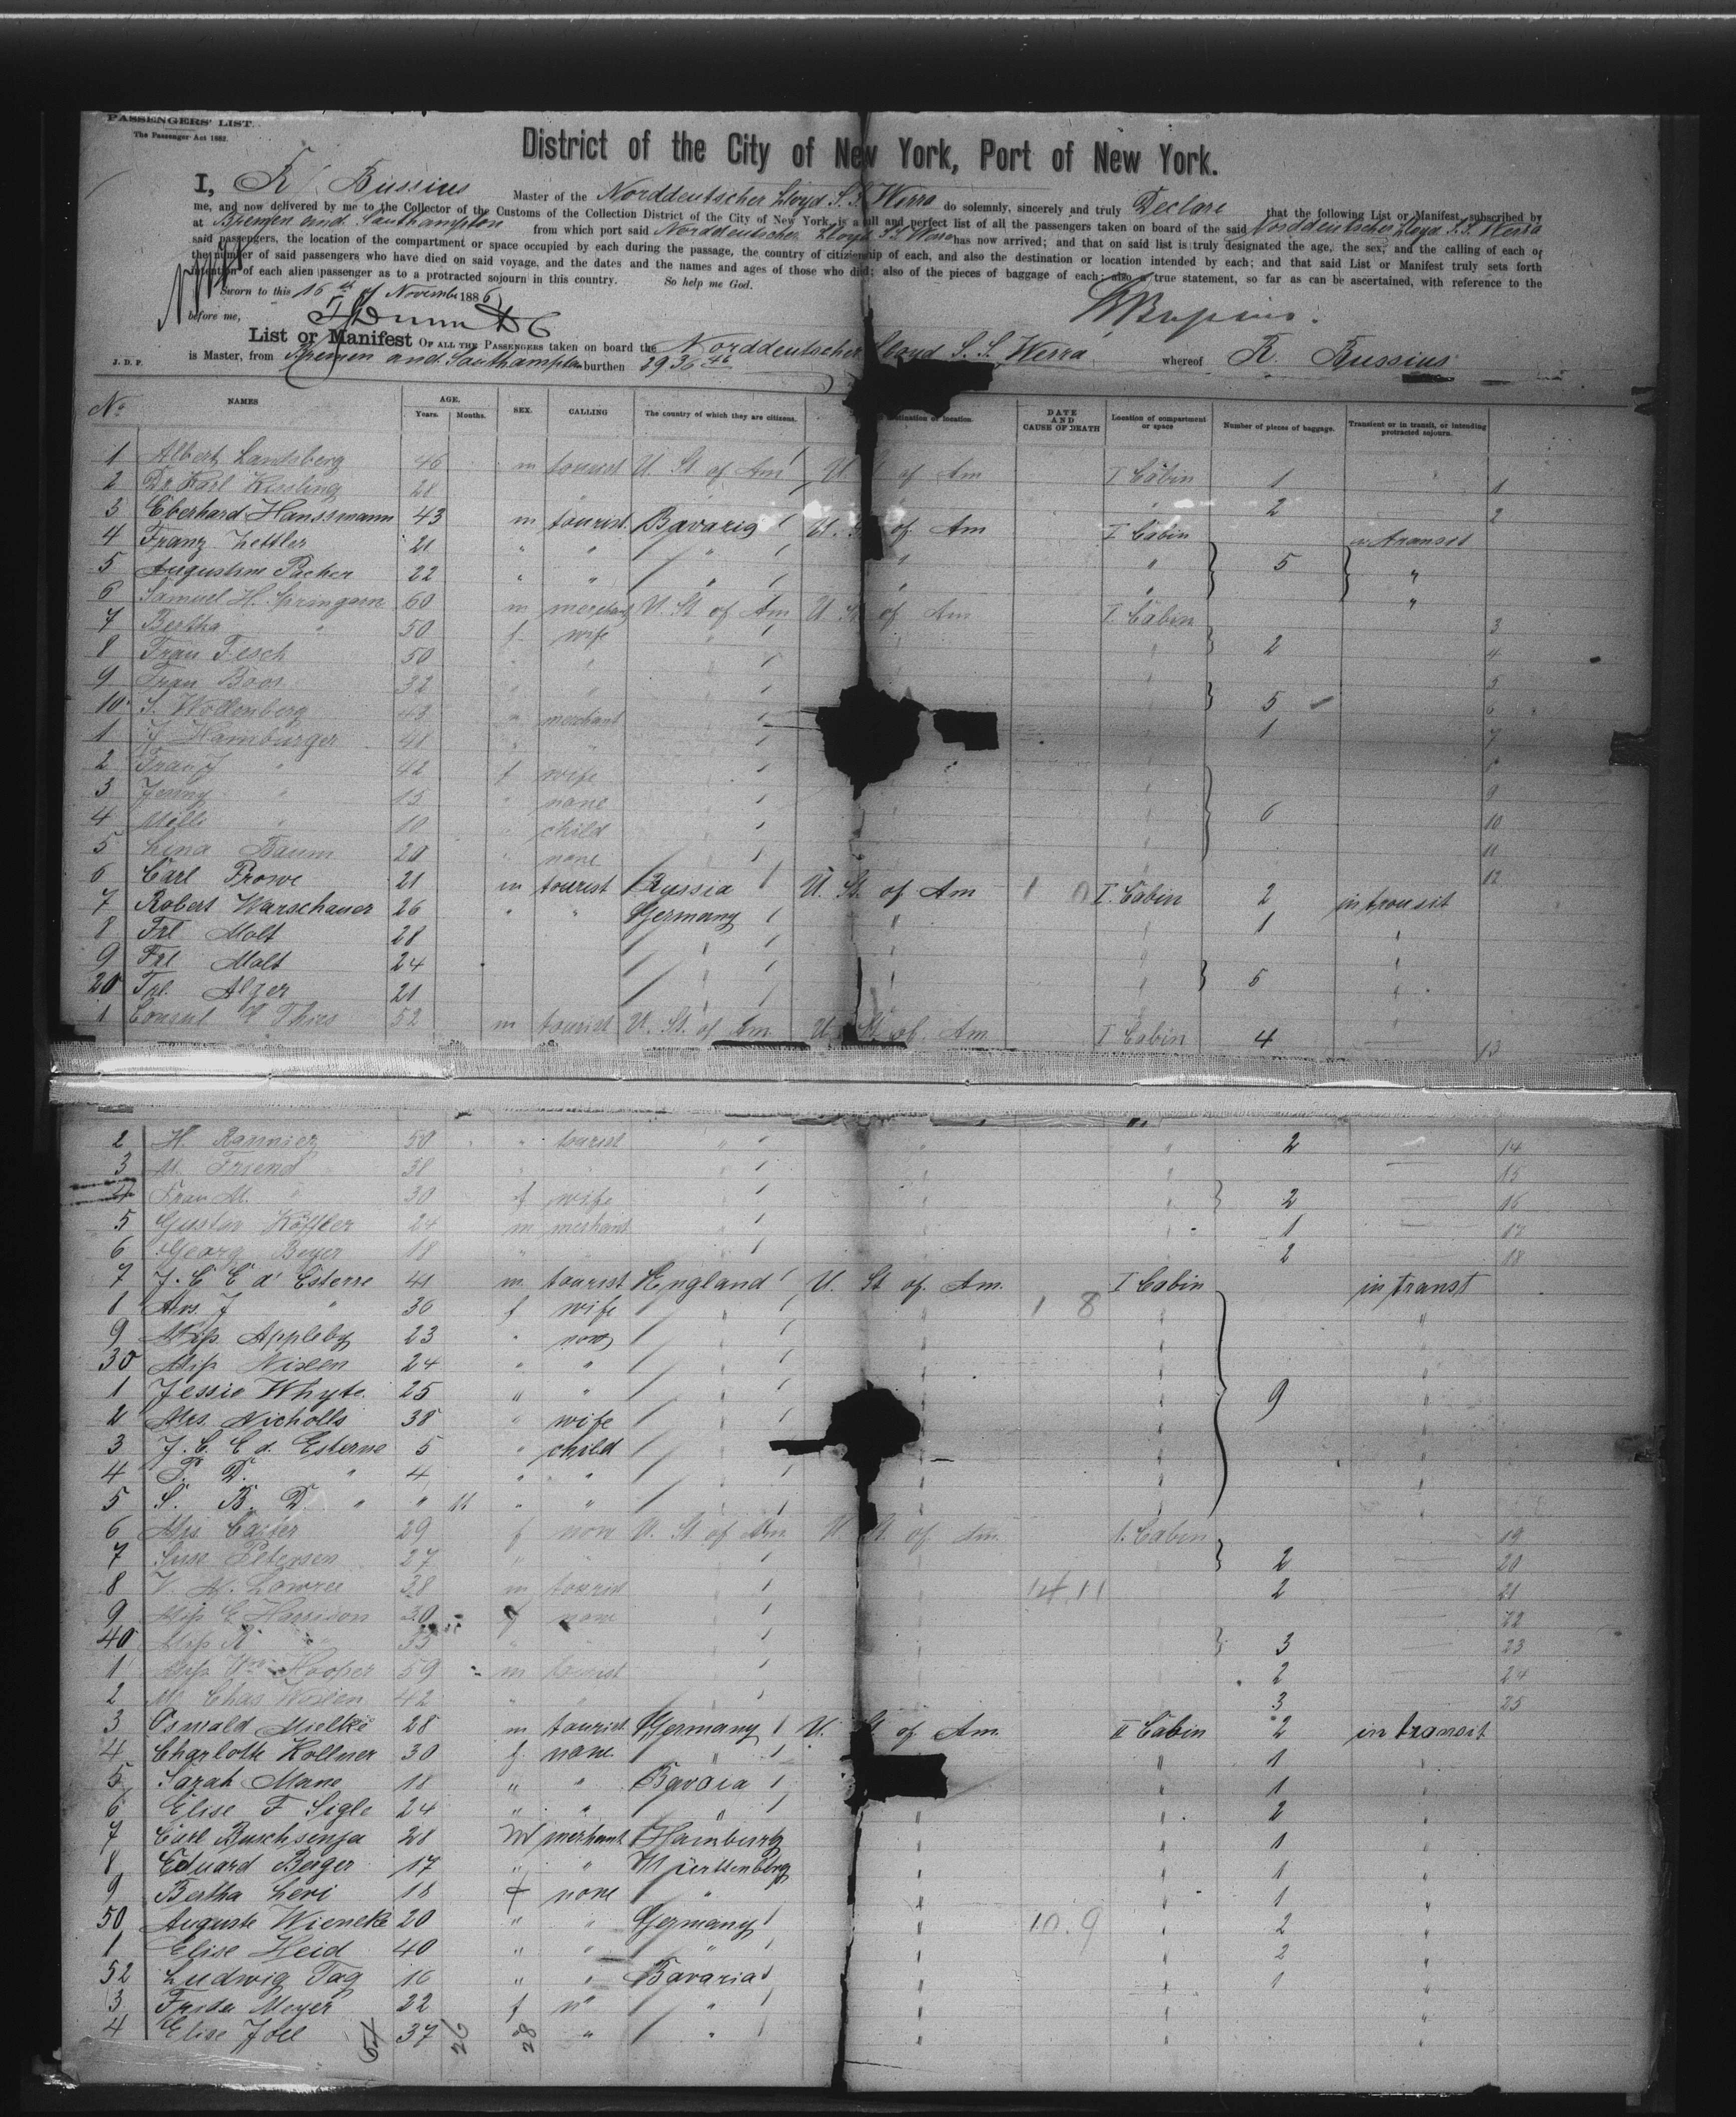 PASSENGERS' LIST.
The Passenger Act 1882.
District of the City of New York, Port of New York.
I, R. Bussius Master of the Norddeutscher Lloyd S.S. Werra do solemnly, sincerely and truly Declare that the following List or Manifest, subscribed by
me, and now delivered by me to the Collector of the Customs of the Collection District of the City of New York, is a full and perfect list of all the passengers taken on board of the said Norddeutscher Lloyd S.S. Werra
at Bremen and Southampton from which port said Norddeutscher Lloyd S.S. Werra has now arrived; and that on said list is truly designated the age, the sex, and the calling of each of
said passengers, the location of the compartment or space occupied by each during the passage, the country of citizenship of each, and also the destination or location intended by each; and that said List or Manifest truly sets forth
the number of said passengers who have died on said voyage, and the dates and the names and ages of those who died; also of the pieces of baggage of each; also a true statement, so far as can be ascertained, with reference to the
intention of each alien passenger as to a protracted sojourn in this country. So help me God.
Sworn to this 16th of November 1886
before me,
List or Manifest OF ALL THE PASSENGERS taken on board the Norddeutscher Lloyd S.S. Werra whereof R. Bussius
J. D. P. is Master, from Bremen and Southampton burthen
No NAMES AGE. Years. Months. SEX. CALLING The country of which they are citizens. location. DATE AND CAUSE OF DEATH Location of compartment or space Number of pieces of baggage. Transient or in transit, or intending protracted sojourn.
1 Albert Landsberg 46 m tourist U. St of Am U. St of Am I Cabin 1 1
2 Dr. Karl Kissling 28 " 2 2
3 Eberhard Hanssmann 43 m tourist Bavaria U. St of Am I Cabin in transit
4 Franz Zettler 21 " " " " " 5 "
5 Augustine Pacher 22 " " " " " "
6 Samuel H. 60 m merchant U. St of Am U. St of Am I Cabin 3
7 Bertha " 50 f wife 2 4
8 Frau Fesch 50 5
9 Frau Boos 32 5 6
10 S. Wollenberg 43 merchant 1 7
1 J Hamburger 41 8
2 Frau J " 42 f wife 9
3 Jenny " 15 none 6 10
4 Milli " 10 child 11
5 Lina Baum 20 none 12
6 Carl Prowe 21 m tourist Russia U. St. of Am I. Cabin 2 in transit
7 Robert Warschauer 26 " " Germany " 1
8 Frl Molt 28
9 Frl Molt 24
20 Frl. Alzer 21
1 Consul 52 m tourist U. St. of Am U. St. of Am I Cabin 4 13
2 H. 50 " tourist 2 14
3 M. Friend 38 15
4 Frau M. " 30 f wife 2 16
5 Gustav Köffler 24 m merchant 1 17
6 Georg Beyer 18 2 18
7 J. C. E d' Esterre 41 m tourist England U. St of Am. I Cabin in transit
8 Mrs. J " 36 f wife "
9 Miss Appleby 23 " none
30 Miss Nixen 24 " "
1 Jessie Whyte 25 " " 9
2 Mrs. Nicholls 38 " wife
3 J. C. E d. Esterre 5 " child
4 P. D. " 4 " "
5 S. B. D. " " 11 " "
6 29 f none U. St of Am U. St. of Am I. Cabin 19
7 Petersen 27 2 20
8 V. Lowree 38 m tourist 2 21
9 Miss E Harrison 30 f none 22
40 Miss R " 33 3 23
1 Hooper 59 m tourist 2 24
2 Mr Chas 42 3 25
3 Oswald Mielke 28 m tourist Germany U. St of Am. II Cabin 2 in transit
4 Charlotte Kollner 30 f. none. " 1
5 Sarah Mane 18 " " Bavaria 1
6 Elise F Sigle 24 " " " 2
7 Carl 28 M merchant Hamburg 1
8 Eduard Berger 17 " " Württenberg 1
9 Bertha Levi 18 f none " 1
50 Auguste Wieneke 20 " " Germany 2
1 Elise Heid 40 " " " 2
52 Ludwig Tag 16 " " Bavaria 1
3 Frida Meyer 22 f " "
4 Elise Joel 37 " " "
54 26 28